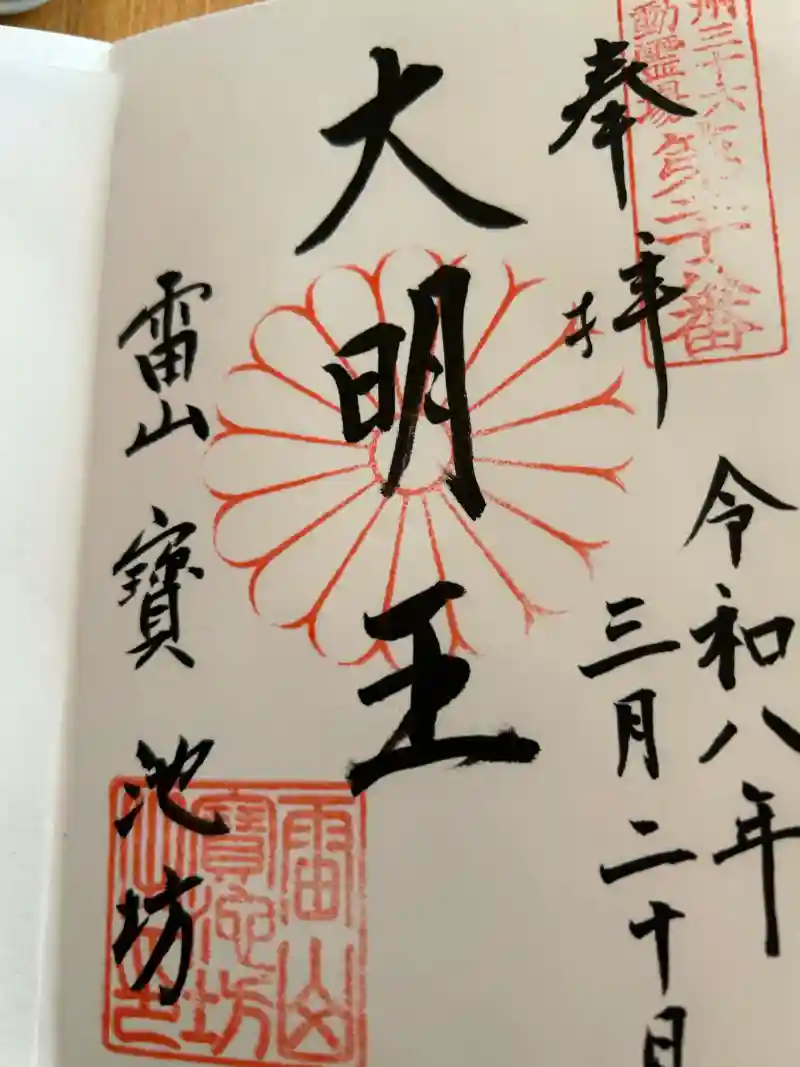 州三十六
動霊場
第二十八番
奉拝
令和八年
三月二十日
大明王
雷山寶池坊
雷山
寶池坊